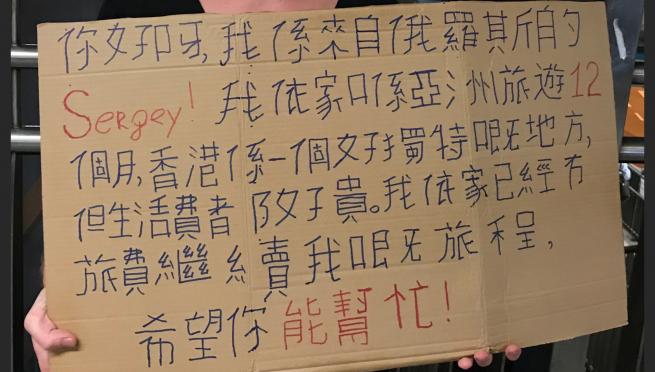 你好呀,我係來自俄羅斯的
Sergey! 我依家口係亞洲旅遊12
個月,香港係一個好獨特嘅地方,
但生活費者陔好貴。我依家已經冇
旅費繼續我嘅旅程,
希望你能幫忙!